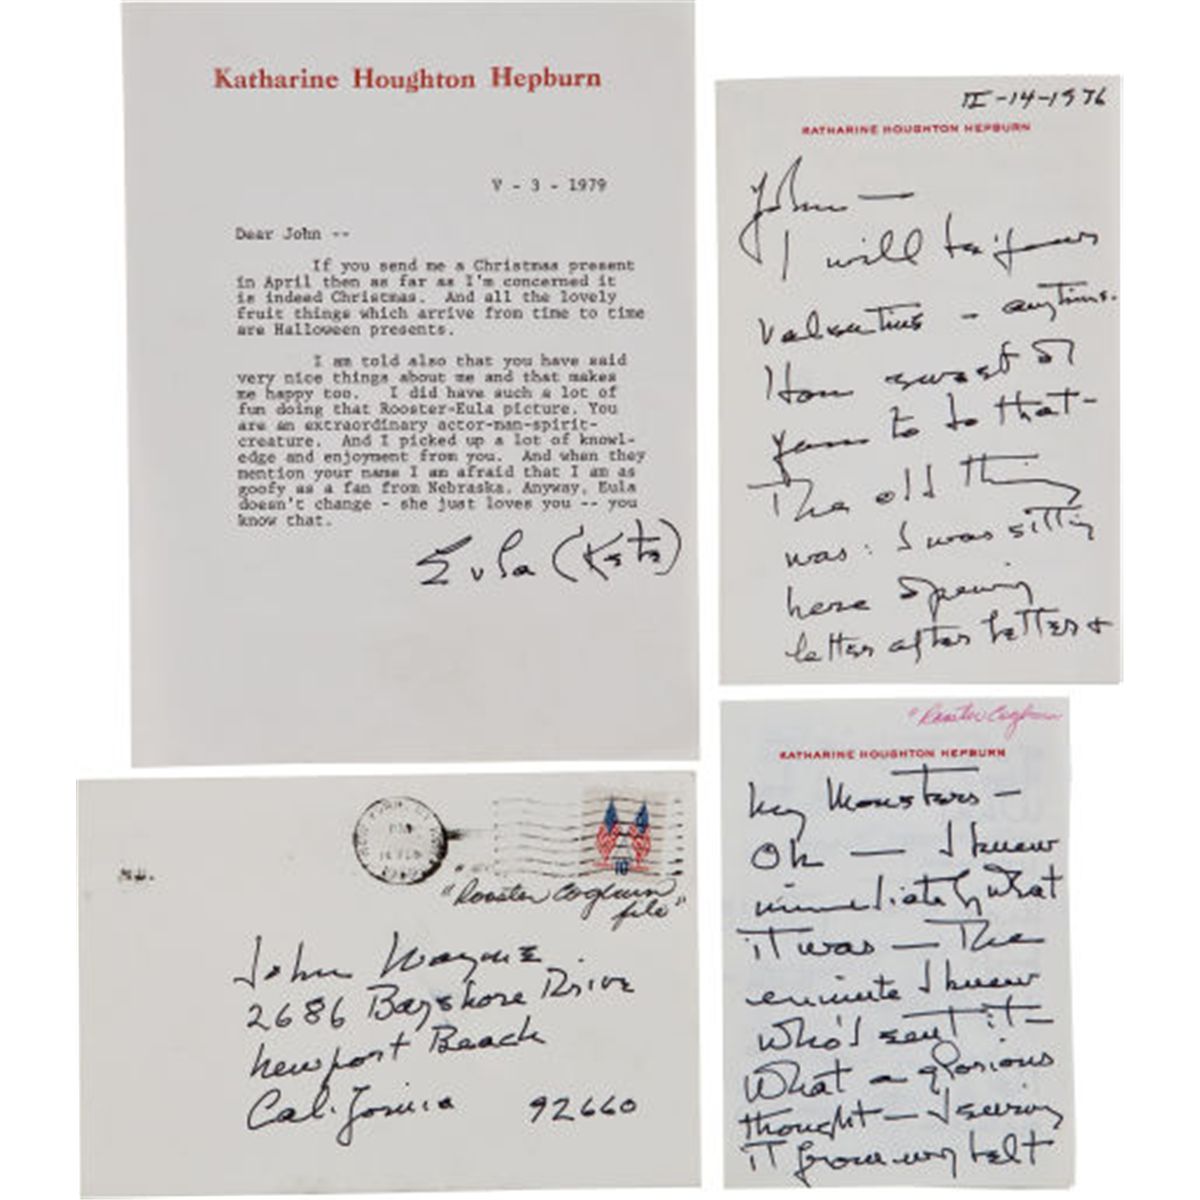 Katharine Houghton Hepburn
V - 3 - 1979
Dear John --
If you send me a Christmas present
in April then as far as I'm concerned it
is indeed Christmas. And all the lovely
fruit things which arrive from time to time
are Halloween presents.
I am told also that you have said
very nice things about me and that makes
me happy too. I did have such a lot of
fun doing that Rooster-Eula picture. You
are an extraordinary actor-man-spirit-
creature. And I picked up a lot of knowl-
edge and enjoyment from you. And when they
mention your name I am afraid that I am as
goofy as a fan from Nebraska. Anyway, Eula
doesn't change - she just loves you -- you
know that.
Eula (Kate)
II-14-1976
KATHARINE HOUGHTON HEPBURN
John —
I will be your
valentine - anytime.
How sweet of
you to do that-
The old thing
was: I was sitting
here opening
letter after letter +
"Rooster Cogburn
KATHARINE HOUGHTON HEPBURN
my monsters —
Oh — I knew
immediately what
it was — The
minute I knew
who'd sent it—
What a glorious
thought — I swing
it from my belt
10
"Rooster Cogburn
file"
John Wayne
2686 Bayshore Drive
Newport Beach
California 92660